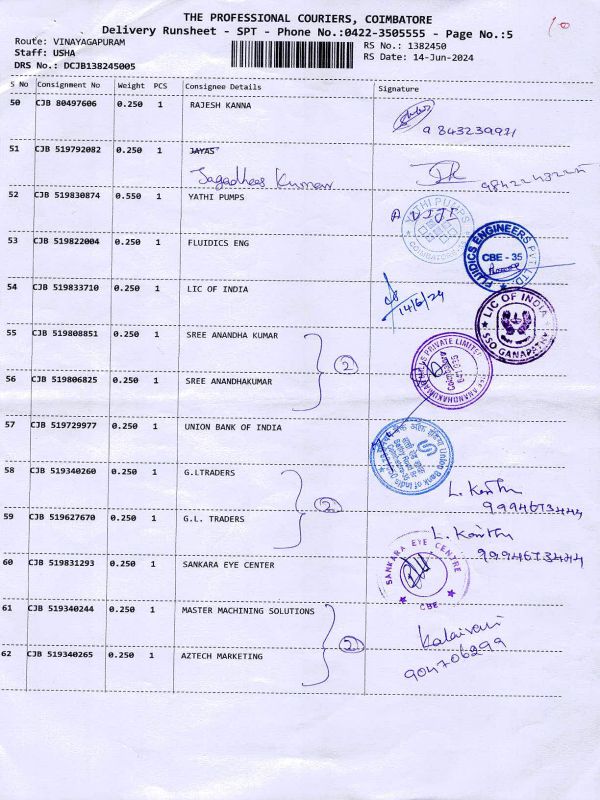 THE PROFESSIONAL COURIERS, COIMBATORE
Delivery Runsheet - SPT - Phone No.:0422-3505555 - Page No.:5
Route: VINAYAGAPURAM
Staff: USHA
DRS No.: DCJB138245005
RS No.: 1382450
RS Date: 14-Jun-2024
S No Consignment No Weight PCS Consignee Details Signature
50 CJB 80497606 0.250 1 RAJESH KANNA
9843239921
51 CJB 519792082 0.250 1 JAYAS
Jagadhees Kumar
52 CJB 519830874 0.550 1 YATHI PUMPS
YATHI PUMPS
COIMBATORE
53 CJB 519822004 0.250 1 FLUIDICS ENG
FLUIDICS ENGINEERS PVT. LTD.
CBE - 35
54 CJB 519833710 0.250 1 LIC OF INDIA
14/6/24
LIC OF INDIA
SSO GANAPATHY
55 CJB 519808851 0.250 1 SREE ANANDHA KUMAR
2
PRIVATE LIMITED
56 CJB 519806825 0.250 1 SREE ANANDHAKUMAR
57 CJB 519729977 0.250 1 UNION BANK OF INDIA
Union Bank of India
58 CJB 519340260 0.250 1 G.LTRADERS
2
L. Kanthi
9994673444
59 CJB 519627670 0.250 1 G.L. TRADERS
L. Kanthi
9994673444
60 CJB 519831293 0.250 1 SANKARA EYE CENTER
SANKARA EYE CENTRE
CBE
61 CJB 519340244 0.250 1 MASTER MACHINING SOLUTIONS
2
Kalaivani
904706299
62 CJB 519340265 0.250 1 AZTECH MARKETING